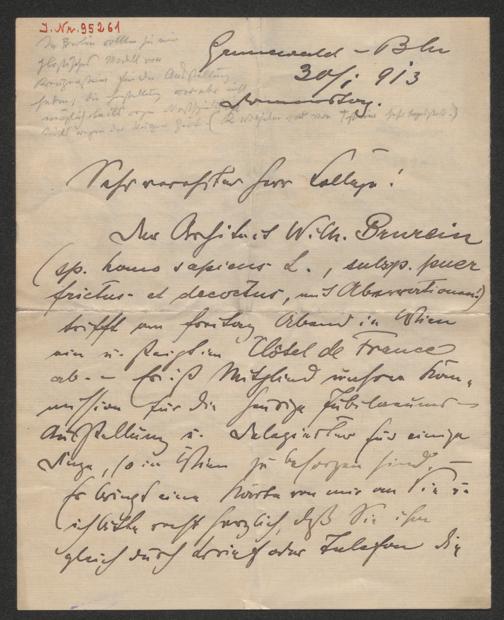 J. Nr. 95261
In Berlin wollten sie ein
plastisches Modell von
für die Ausstellung
haben, die
wegen der kurzen Zeit.
Grunewald-Bln
30/I. 913
Donnerstag.
Sehr verehrter Herr Kollege!
Der Architect W. Ch. Brurein
(sp. homo sapiens L., subsp. puer
frictus et decoctus, mit Aberrationen)
trifft am Freitag Abend in Wien
ein u. steigt im Hôtel de France
ab. – Er ist Mitglied unserer Kom-
mission für die hiesige Jubilaeums-
Ausstellung u. Delegierter für einige
Dinge, so in Wien zu besorgen sind. –
Er bringt eine Karte von mir an Sie u.
ich bitte recht herzlich, daß Sie ihm
gleich durch Brief oder Telefon die